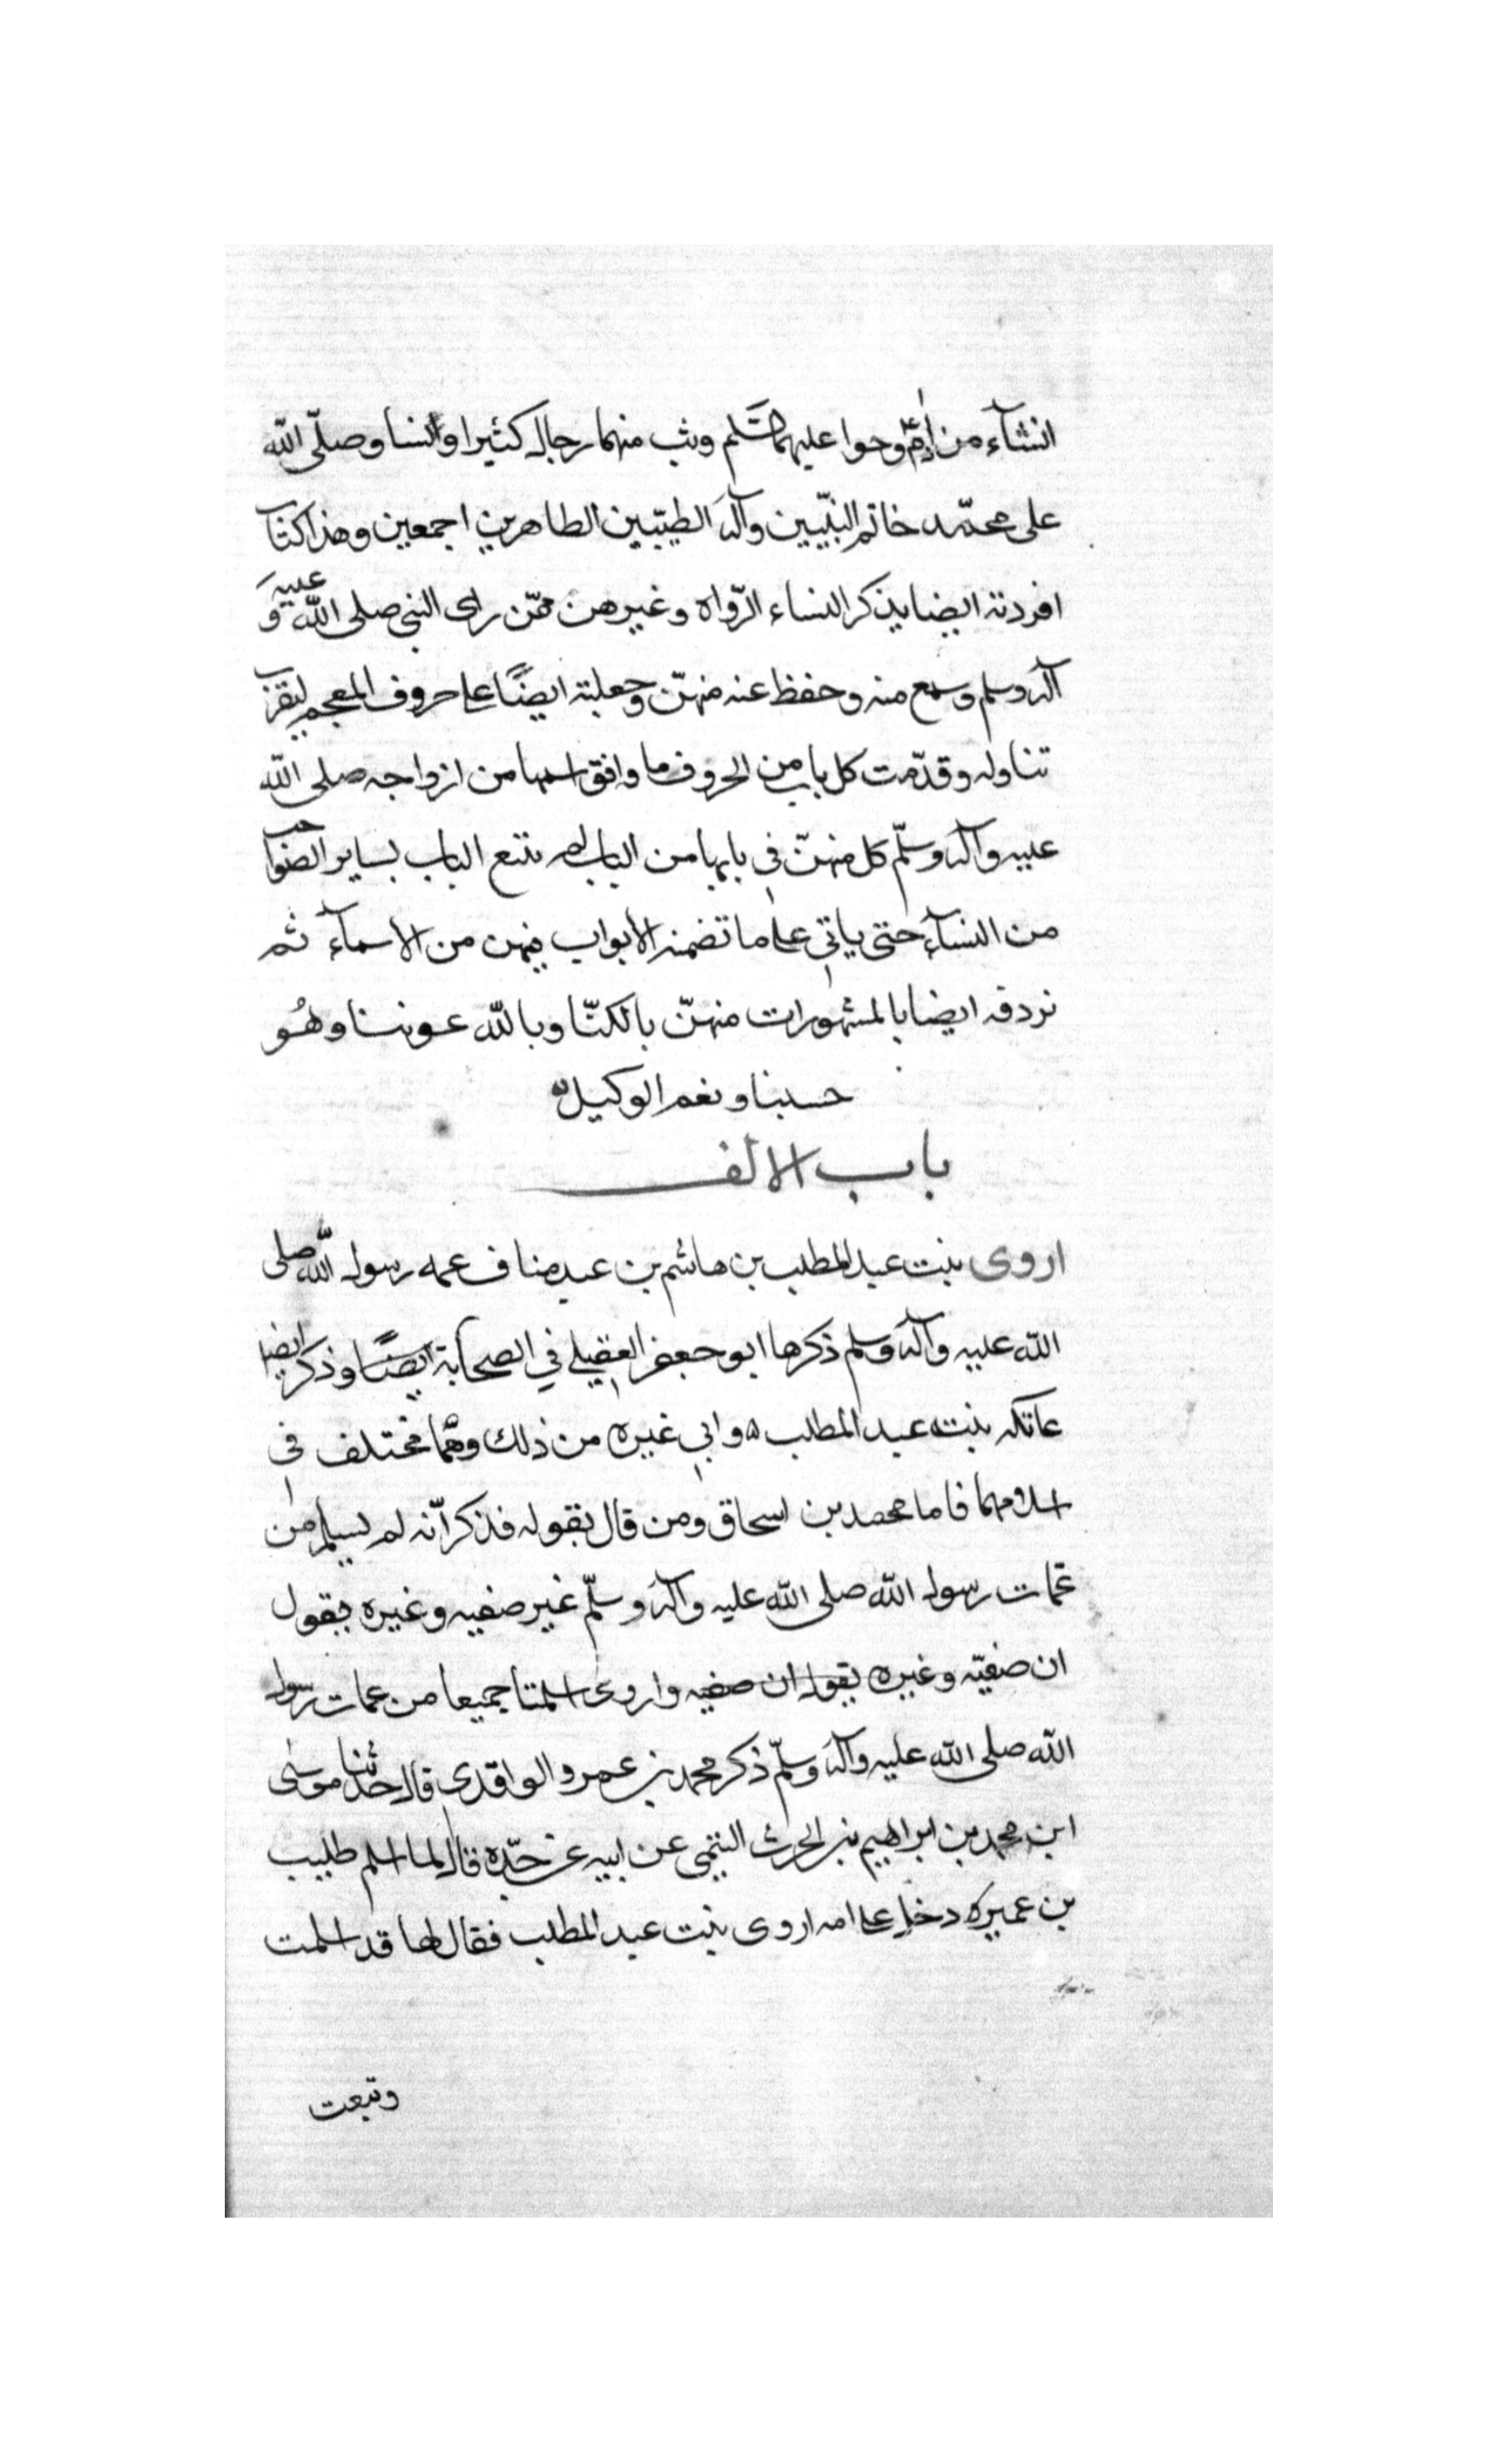 النشآء من آدم وحوا عليهما السّلم وبث منهما رجال كثيرا والنسا وصلّى الله
على محمّد خاتم النبيّين وآله الطيّبين الطاهرين اجمعين وهذا كتاب
افردته ايضا بذكر النساء الرّواه وغيرهن ممّن راى النبى صلى الله عليه و
آله وسلم وسمع منه وحفظ عنه منهنّ وجعلته ايضًا على حروف المعجم ليقرب
تناوله وقدّمت كل باب من الحروف ما وافق اسمها من ازواجه صلى الله
عليه وآله وسلّم كل منهنّ في بابها من الباب ثم نتبع الباب بساير الصواحب
من النسآء حتى ياتي على ما تضمنه الابواب فيهن من الاسمآء ثم
نردفه ايضا بالمشهورات منهنّ بالكنّا وبالله عوننا وهُو
حسبنا ونعم الوكيل
باب الالف
اروى بنت عبد المطلب بن هاشم بن عبد مناف عمه رسول الله صلى
الله عليه وآله وسلم ذكرها ابو جعفر العقيلي في الصحابة ايضًا وذكر ايضا
عاتكه بنت عبد المطلب وابي غيره من ذلك وهما مختلف في
اسلامهما فاما محمد بن اسحاق ومن قال بقوله فذكر انّه لم يسلم من
عمّات رسول الله صلى الله عليه وآله وسلّم غير صفيه وغيره يقول
ان صفيّه وغيره يقول ان صفيه واروى اسلمتا جميعا من عمات رسول
الله صلى الله عليه وآله وسلّم ذكر محمد بن عمرو الواقدى قال حدثنا موسى
ابن محمد بن ابراهيم بن الحرث التيمى عن ابيه عن جدّه قال لما اسلم طليب
بن عميره دخل على امه اروى بنت عبد المطلب فقال لها قد اسلمت
وتبعت